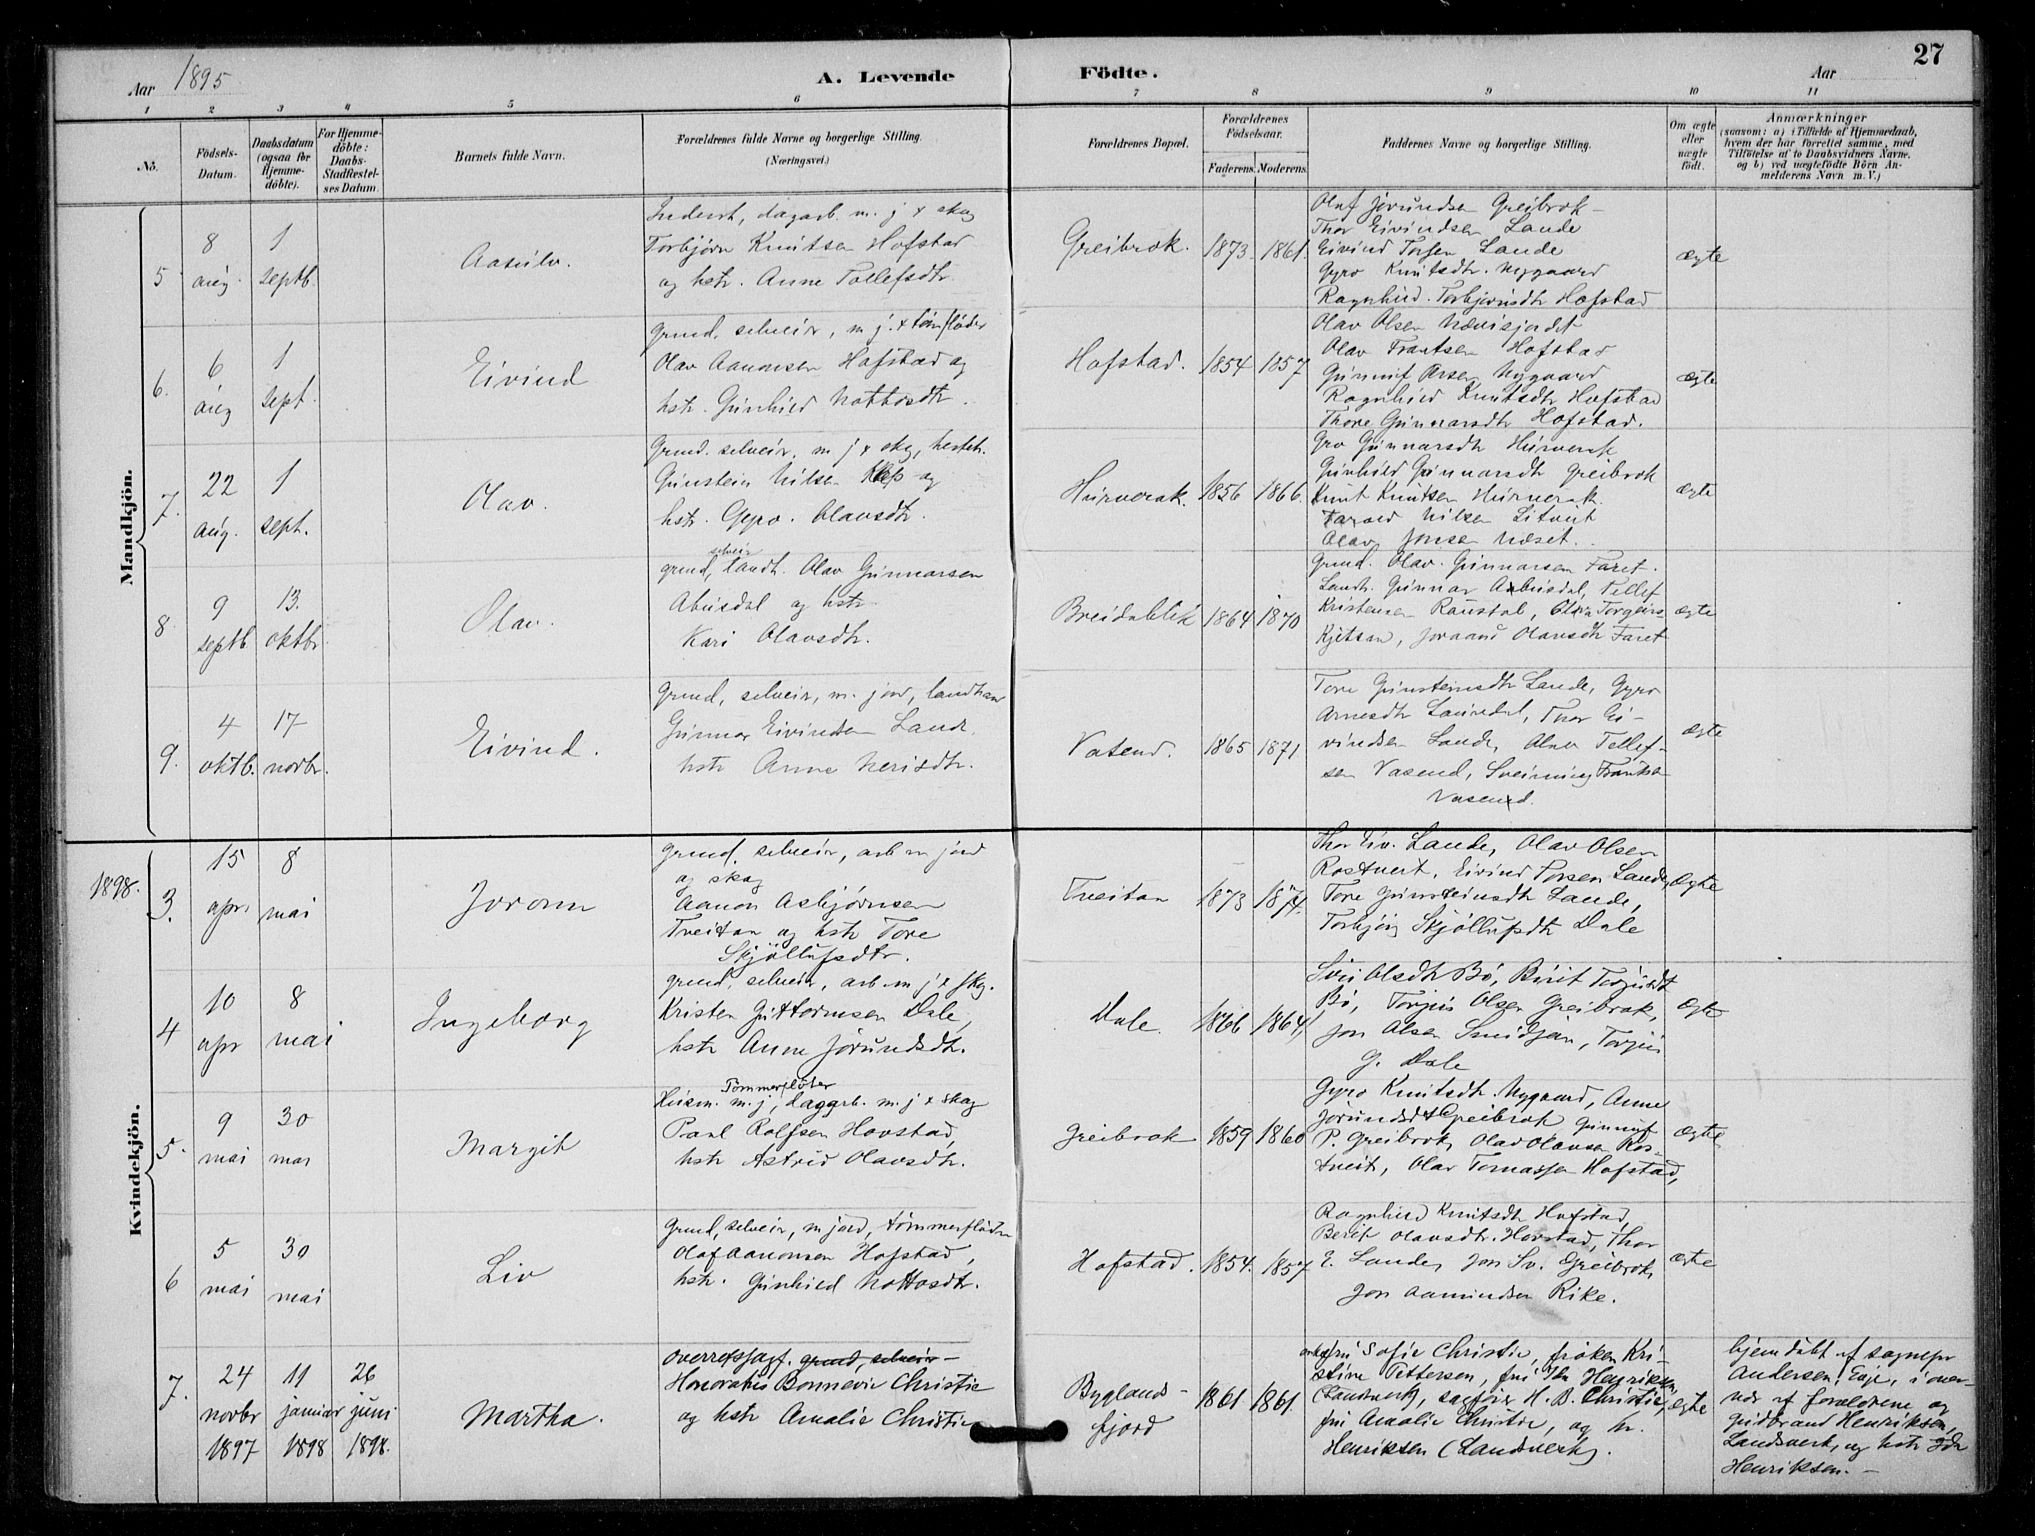 27
Aar 1895
A. Levende Födte.
Aar
1 2 3 4 5 6 7 8 9 10 11
No.
Födsels-Datum.
Daabsdatum (ogsaa før Hjemme-döbte).
For Hjemme-döbte: Daabs-Stadfæstel-ses Datum.
Barnets fulde Navn.
Forældrenes fulde Navne og borgerlige Stilling.
(Næringsvei.)
Forældrenes Bopæl.
Forældrenes Födselsaar.
Faderens. Moderens.
Faddernes Navne og borgerlige Stilling.
Om ægte eller uægte födt.
Anmærkninger
(saasom: a) i Tilfælde af Hjemmedaab,
hvem der har forrettet samme, med
Tilföielse af to Daabsvidners Navne.
og b) ved uægtefödte Börn An-
melderens Navn m. V.)
Mandkjön.
5
8 aug.
1 septb.
Aasulv.
Inderst, dagarb. m. j & skog
Torbjørn Knutsen Hofstad
og hstr. Anne Tollefsdtr.
Greibrok.
1873. 1861.
Olaf Jørundsen Greibrok
Thor Eivindsen Lande
Eivind Torsen Lande
Gyro Knutsdtr. Nygaard
Ragnhild Torbjørnsdtr Hofstad
ægte
6.
6 aug
1 sept.
Eivind
Grund, selveier, m j. & tømfløder
Olav Aanonsen Hofstad og
hstr. Gunhild Nottosdtr.
Hofstad.
1854 1857
Olav Olsen
Olav Frantsen Hofstad
Gunnuf Nygaard
Ragnhild Knutsdtr Hofstad
Thore Gunnarsdtr Hofstad.
ægte
7.
22 aug.
1 sept.
Olav.
Grund. selveier, m j & skog,
Gunstein Nilsen og
hstr. Gyro Olavsdtr.
Hurverak.
1856 1866.
Gro Gunnarsdtr Hurverak
Gunhild Gunnarsdtr Greibrok
Knut Knutsen Hurverak.
Tarald Nilsen Litveit
Olav Jonsen Næset.
ægte
8.
9 septb
13. oktbr.
Olav.
selveier
grund, landh. Olav Gunnarsen
Abusdal og hstr.
Kari Olavsdtr.
Breidablik
1864 1870
Grund. Olav Gunnarsen Faret.
Landh. Gunnar Abusdal, Tellef
Kristensen Raustøl, Torgeirs-
Kjetsan, Joraand Olavsdtr Faret
ægte
9.
4 oktb.
17 novbr.
Eivind.
Grund, selveier, m. jord, landhand
Gunnar Eivindsen Lande
hstr Anne Nerisdtr.
Vatend.
1865 1871
Tore Gunsteinsdtr Lande, Gyro
Arnesdtr Lauvdal, Thor Ei-
vindsen Lande, Olav Tellef-
sen Vasend, Sveinung Frantsen
Vasend.
ægte
1898.
Kvindekjön.
3.
15 apr.
8 mai
Joronn
grund, selveier, arb m jord
og skog
Aanon Asbjørnsen
Treitan og hstr Tore
Skjöllufsdtr.
Treitan
1873 1874.
Thor Eiv. Lande, Olav Olsen
Rostveit, Eivind Torsen Lande,
Tore Gunsteinsdtr Lande,
Torbjørg Skjöllufsdtr Dale
ægte
4
10 apr
8 mai
Ingeborg
grund, selveier, arb. m j & skg.
Kristen Guttormsen Dale,
hstr Anne Jørundsdtr.
Dale.
1866 1864,
Siri Olsdtr Bö, Birit
Bö, Torjus Olsen Greibrok,
Jon Olsen Smidjan, Torjus
G. Dale
ægte
5.
9 mai
30 mai
Margit
Tömmerflöter
Husm. m. j, daggarb. m. j & skog
Paul Rolfsen Hovstad,
hstr Astrid Olavsdtr.
Greibrok
1859 1860
Gyro Knutsdtr. Nygaard, Anne
Jørundsdtr Greibrok Gunnuf
P. Greibrok, Olav Olavsen Ros-
tveit, Olav Tomassen Hofstad,
ægte
6
5 mai
30 mai
Liv
Grund, selveier, m jord, tömmerflöder
Olaf Aanonsen Hofstad,
hstr. Gunhild Nottosdtr.
Hofstad.
1854. 1857
Ragnhild Knutsdtr Hofstad,
Berit Olavsdtr. Hovstad, Thor
E. Lande, Jon Sv. Greibrok,
Jon Aamundsen Rike.
ægte
7.
24 novbr 1897
11 januar 1898
26 juni 1898.
Martha.
Overretssagf. grund, selveier
Honoratus Bonnevie Christie
og hstr Amalie Christie
Byglands-
fjord
1861 1861.
enkefru Sofie Christie, frøken Kri-
stine Pettersen, fru Ida Henriksen
(Landsverk), sagfører H. B. Christie,
fru Amalie Christie, og hr.
Henriksen (Landsverk).
ægte
hjemdøbt af sognepr
Andersen, Evje, i over-
vær af forældrene og
Gudbrand Henriksen,
Landsverk, og hstr Ida
Henriksen.